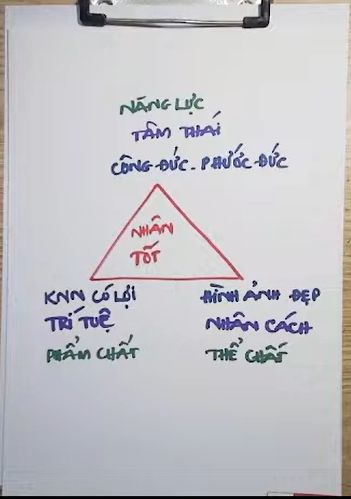 NĂNG LỰC
TÂM THÁI
CÔNG ĐỨC - PHƯỚC ĐỨC
NHÂN
TỐT
KNN CÓ LỢI
TRÍ TUỆ
PHẨM CHẤT
HÌNH ẢNH ĐẸP
NHÂN CÁCH
THỂ CHẤT